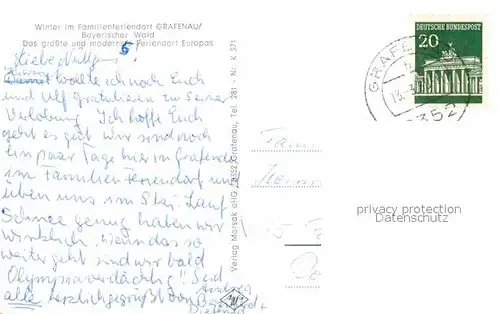 Winter im Familienferiendorf GRAFENAU/
Bayerischer Wald
Das größte und modernste Feriendorf Europas
6
Liebe
wollte ich noch Euch
und Ulf gratulieren zu seiner
Verlobung. Ich hoffe Euch
geht es gut. Wir sind noch
ein paar Tage hier in Grafenau
im Familienferiendorf und
üben uns im Ski-Lauf.
Schnee genug haben wir
wirklich. Wenn das so
weiter geht sind wir bald
Olympiaverdächtig!! Seid
alle herzlichgegrüßt von
Verlag Morsak oHG, 8352 Grafenau, Tel. 281 - Nr. K 571
DEUTSCHE BUNDESPOST
20
GRAFE
13.3.
352
Fam
privacy protection
Datenschutz
Agfa